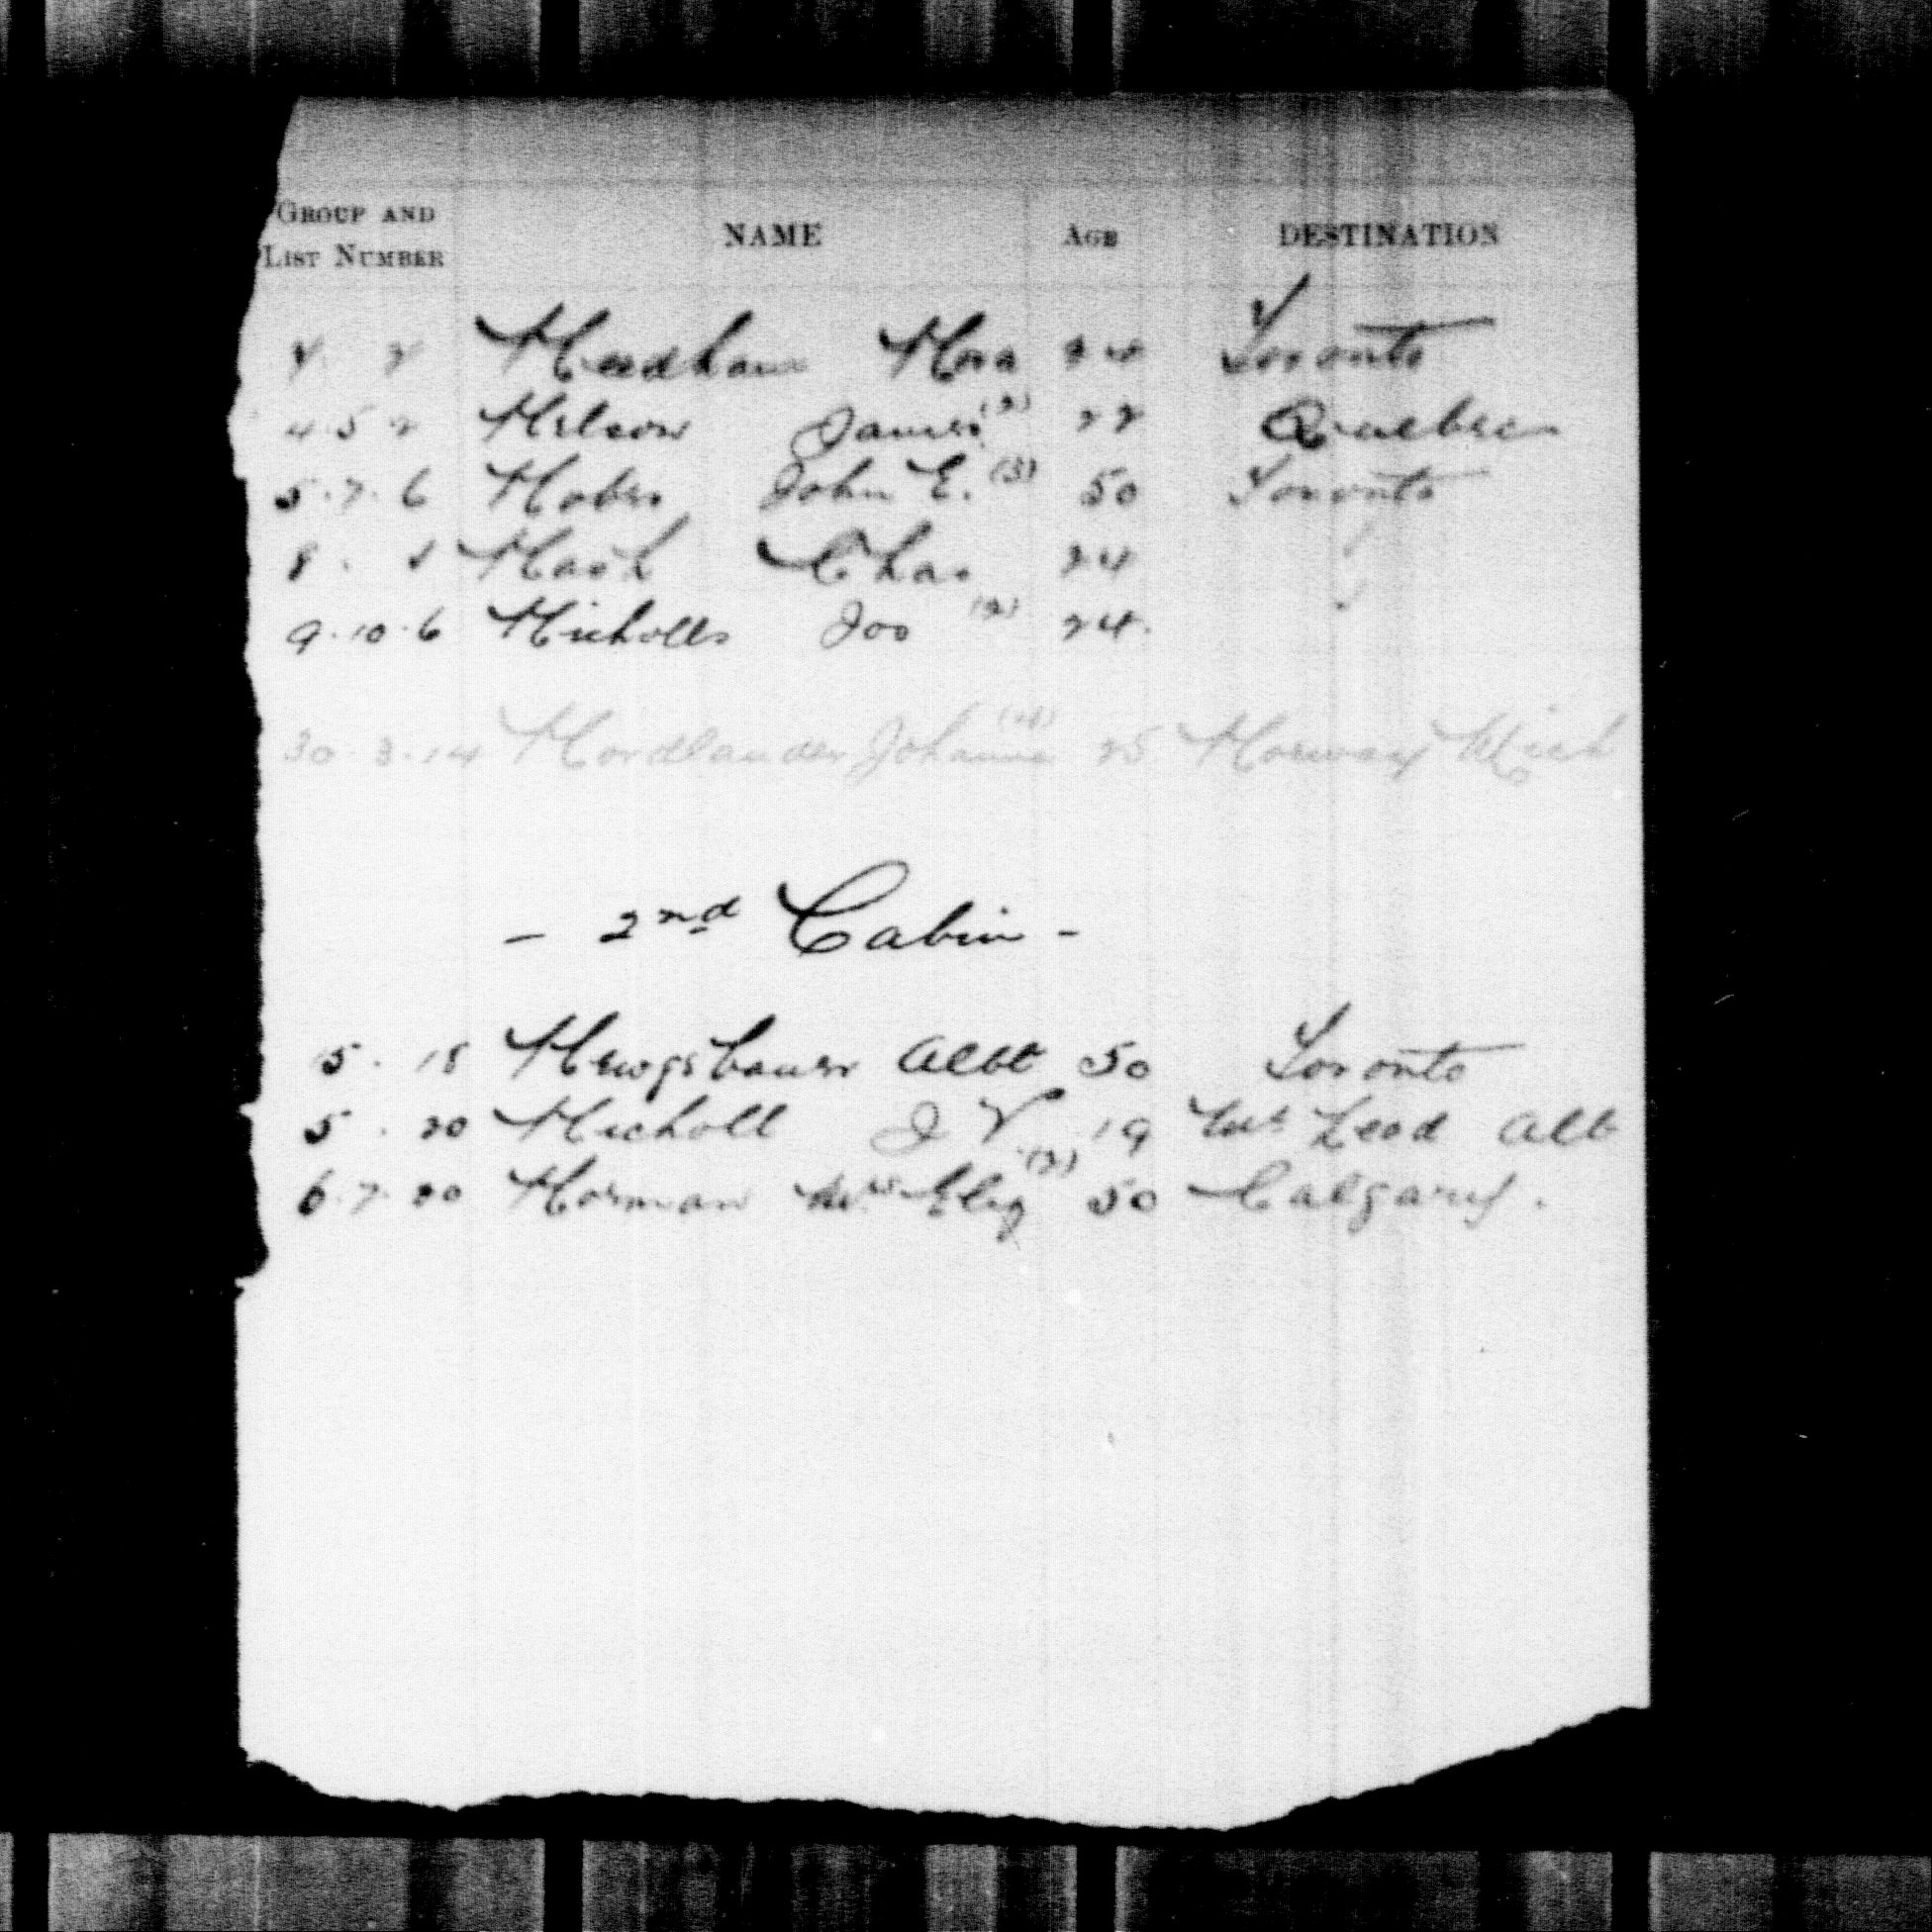 GROUP AND LIST NUMBER NAME AGE DESTINATION
Needham Nora Toronto
4.5 2 Nelson James (2) 22 Quebec
5.7.6 Nobes John E. (3) 50 Toronto
8. Nash Chas 24 "
9.10.6 Nicholls Jos (2) 24 "
30.3.14 Nordlander Johanna 25 Norway Mich
- 2nd Cabin -
5. 18 Newgsbauer Albt 50 Toronto
5. 20 Nicholl J V 19 Mc Leod Alb
6.7.20 Norman Mrs Eliz (2) 50 Calgary.